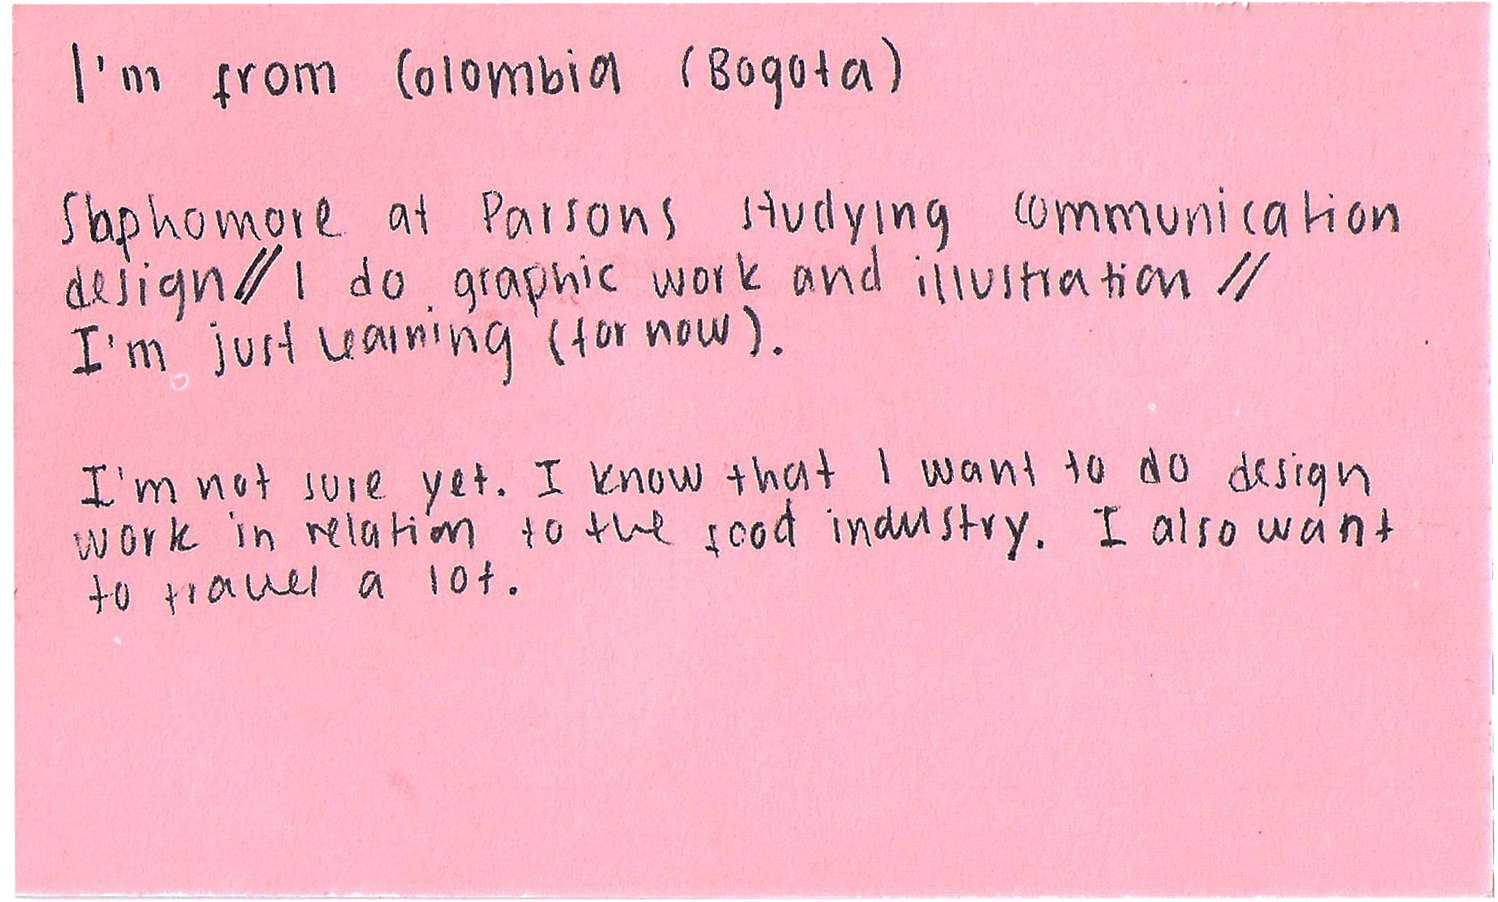 I'm from Colombia (Bogota)
Sophomore at Parsons studying communication
design // I do graphic work and illustration //
I'm just learning (for now).
I'm not sure yet. I know that I want to do design
work in relation to the food industry. I also want
to travel a lot.